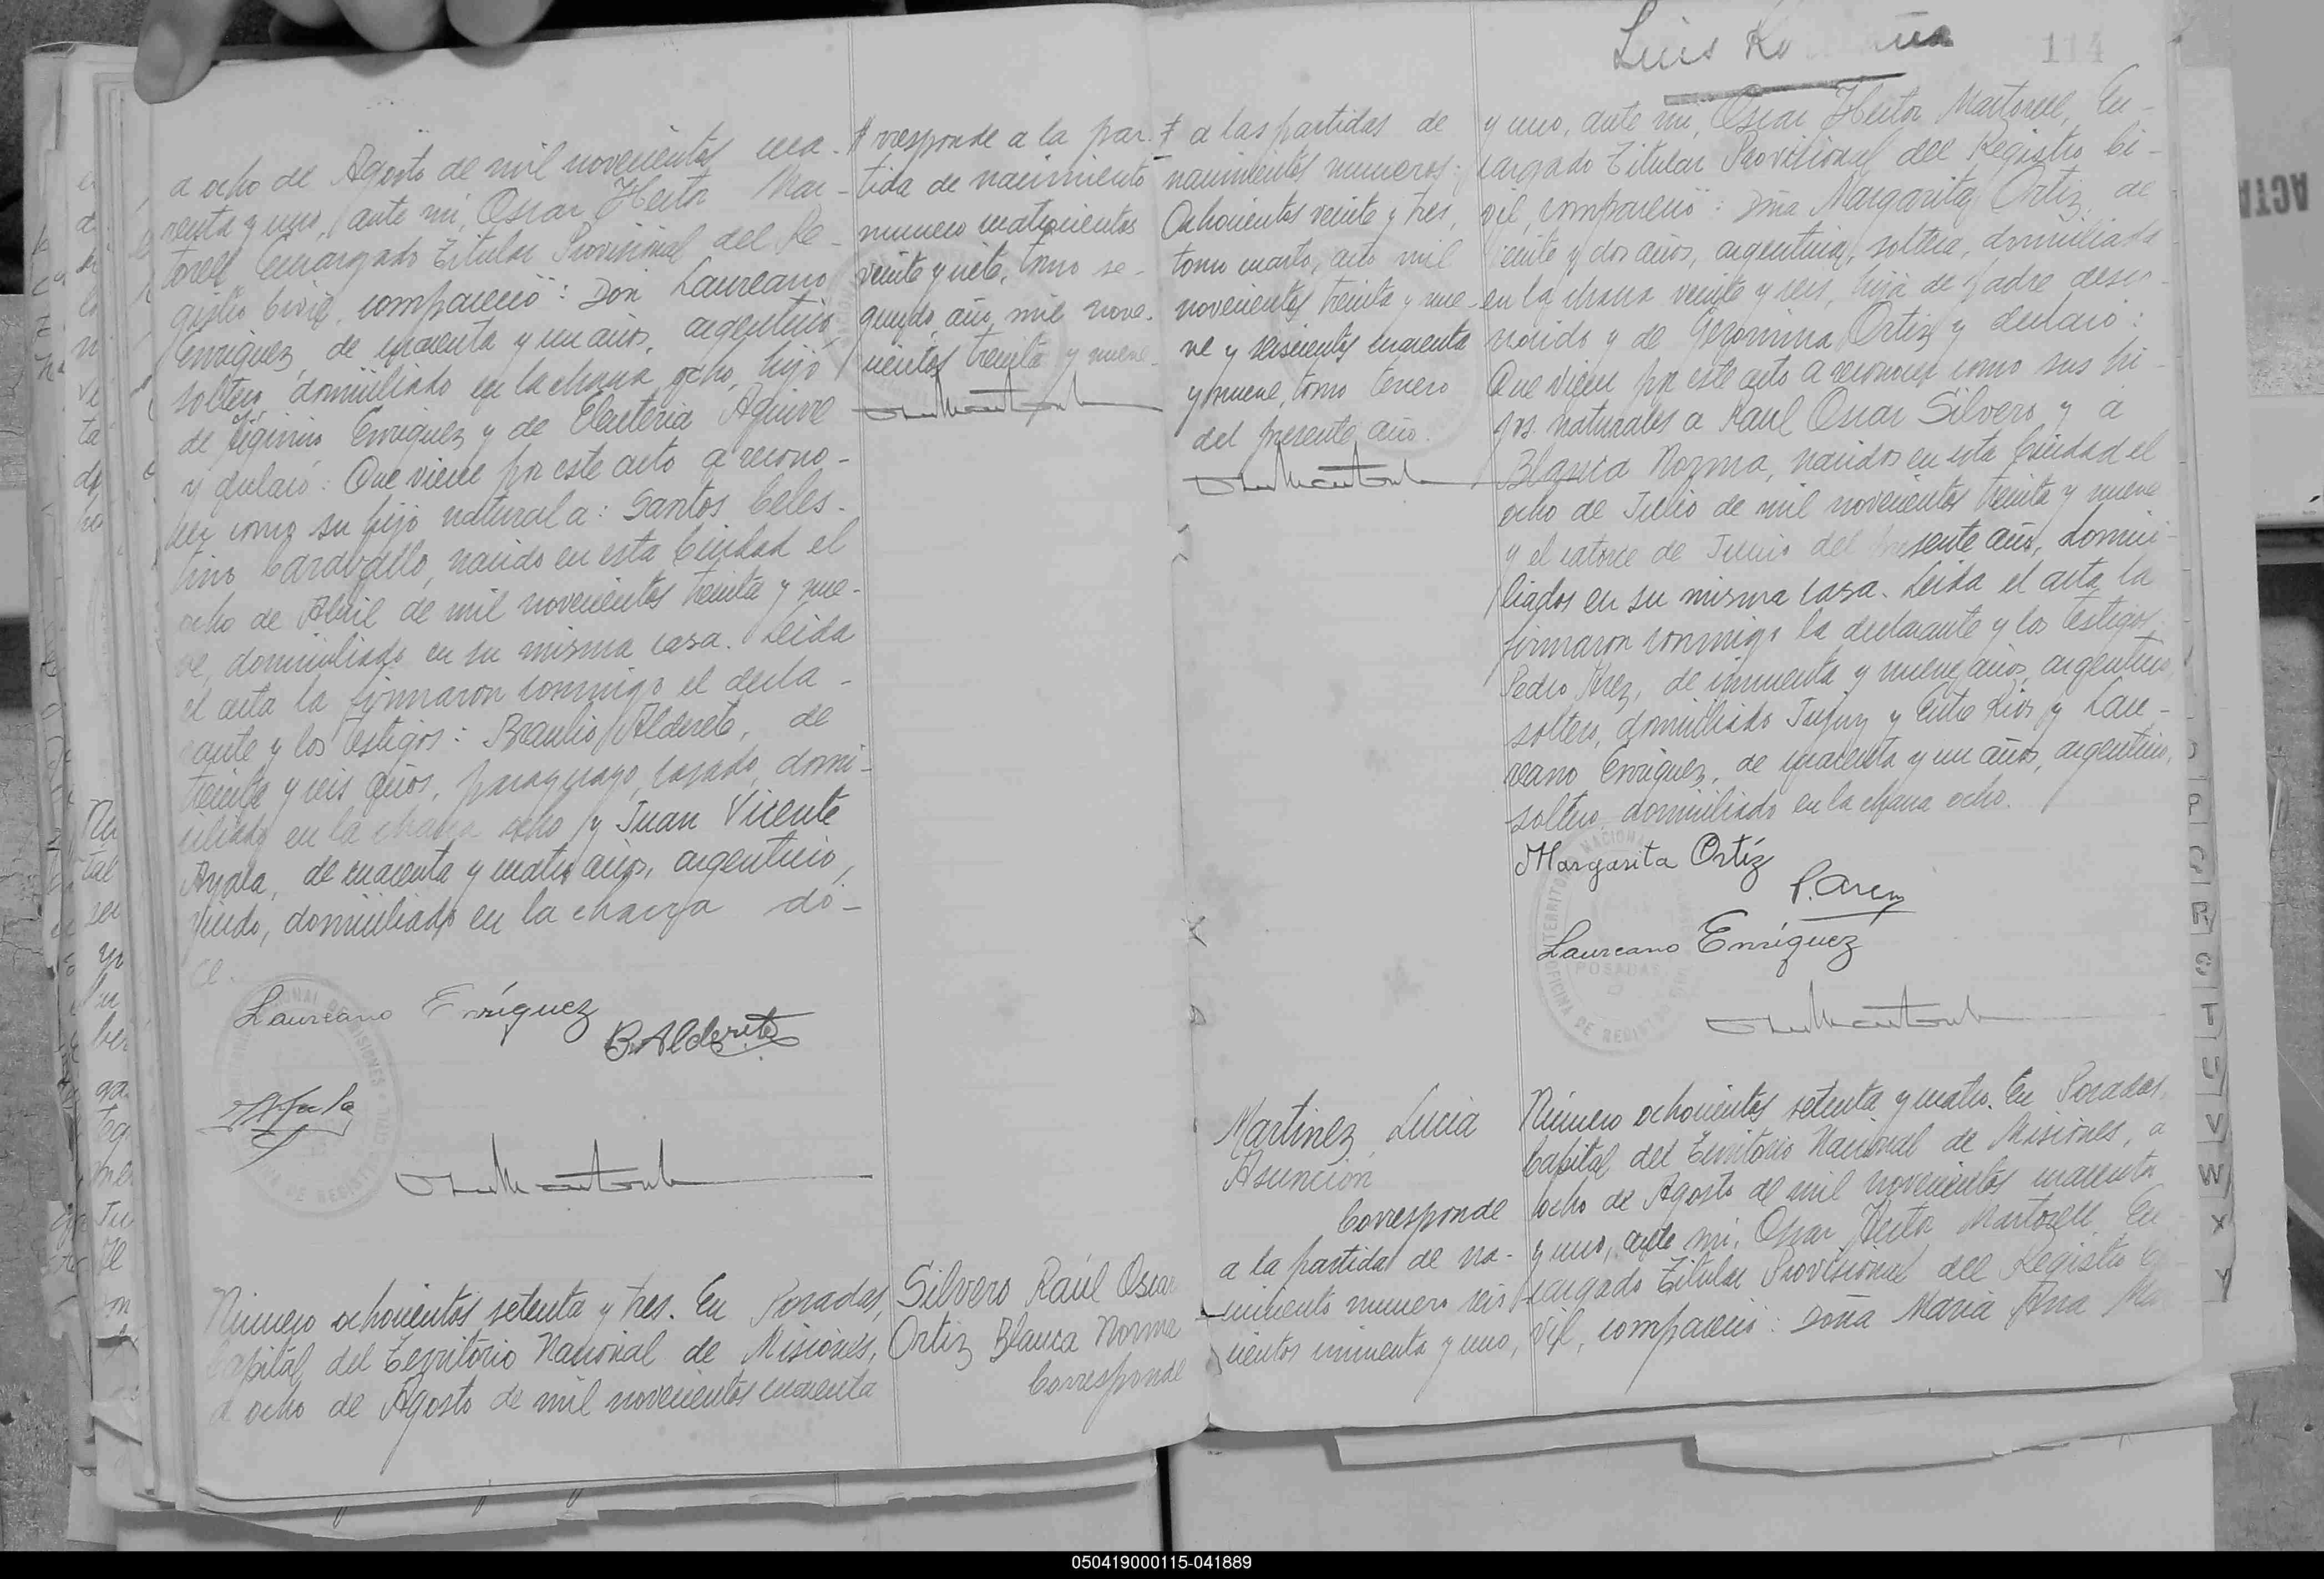 a ocho de Agosto de mil novecientos cua-
renta y uno, ante mi, Oscar Hector Mar-
torell Encargado Titular Provisional del Re-
gistro Civil, compareció: Don Laureano
Enriquez, de cuarenta y un años, argentino,
soltero, domiciliado en la chacra ocho, hijo
de Higinio Enriquez y de Eleuteria Aguirre
y declaró: Que viene por este acto a recono-
cer como su hijo natural a: Santos Celes-
tino Caravallo, nacido en esta Ciudad el
ocho de Abril de mil novecientos treinta y nue-
ve, domiciliado en su misma casa. Leida
el acta la firmaron conmigo el decla-
rante y los testigos: Braulio Alderete, de
treinta y seis años, paraguayo, casado, domi-
ciliado en la chacra ocho y Juan Vicente
Ayala, de cuarenta y cuatro años, argentino,
viudo, domiciliado en la chacra dó-
ce.
Laureano Enríquez
B. Alderete
Número ochocientos setenta y tres. En Posadas,
Capital del Territorio Nacional de Misiones,
a ocho de Agosto de mil novecientos cuarenta
# rresponde a la par-
tida de nacimiento
numero cuatrocientos
veinte y siete, tomo se-
gundo, año mil nove-
cientos treinta y nueve.
Silvero Raúl Oscar
Ortiz Blanca Norma
Corresponde
‡ a las partidas de
nacimientos numeros:
Ochocientos veinte y tres,
tomo cuarto, año mil
novecientos treinta y nue-
ve y seiscientos cuarenta
y nueve, tomo tercero
del presente año.
Martinez, Lucia
Asunción
Corresponde
a la partida de na-
cimiento numero seis
cientos cincuenta y uno,
Luis
114
y uno, ante mi, Oscar Hector Martorell, En-
cargado Titular Provisional del Registro Ci-
vil, compareció: Doña Margarita Ortiz, de
veinte y dos años, argentina, soltera, domiciliada
en la chacra veinte y seis, hija de padre desco-
nocido y de Geronima Ortiz y declaró:
Que viene por este acto a reconocer como sus hi-
jos naturales a Raul Oscar Silvero y a
Blanca Norma, nacidos en esta Ciudad el
ocho de Julio de mil novecientos treinta y nueve
y el catorce de Junio del presente año, domici-
liados en su misma casa. Leida el acta la
firmaron conmigo la declarante y los testigos
Pedro Arez, de cincuenta y nueve años, argentino,
soltero, domiciliado Jujuy y Entre Rios y Lau-
reano Enriquez, de cuarenta y un años, argentino,
soltero, domiciliado en la chacra ocho.
Margarita Ortíz
Laureano Enríquez
POSADAS
Número ochocientos setenta y cuatro. En Posadas,
Capital del Territorio Nacional de Misiones, a
ocho de Agosto de mil novecientos cuarenta
y uno, ante mi, Oscar Hector Martorell, En
cargado Titular Provisional del Registro Ci
vil, compareció: Doña Maria Ana
P
Q
R
S
T
U
V
W
X
Y
ACTA
050419000115-041889